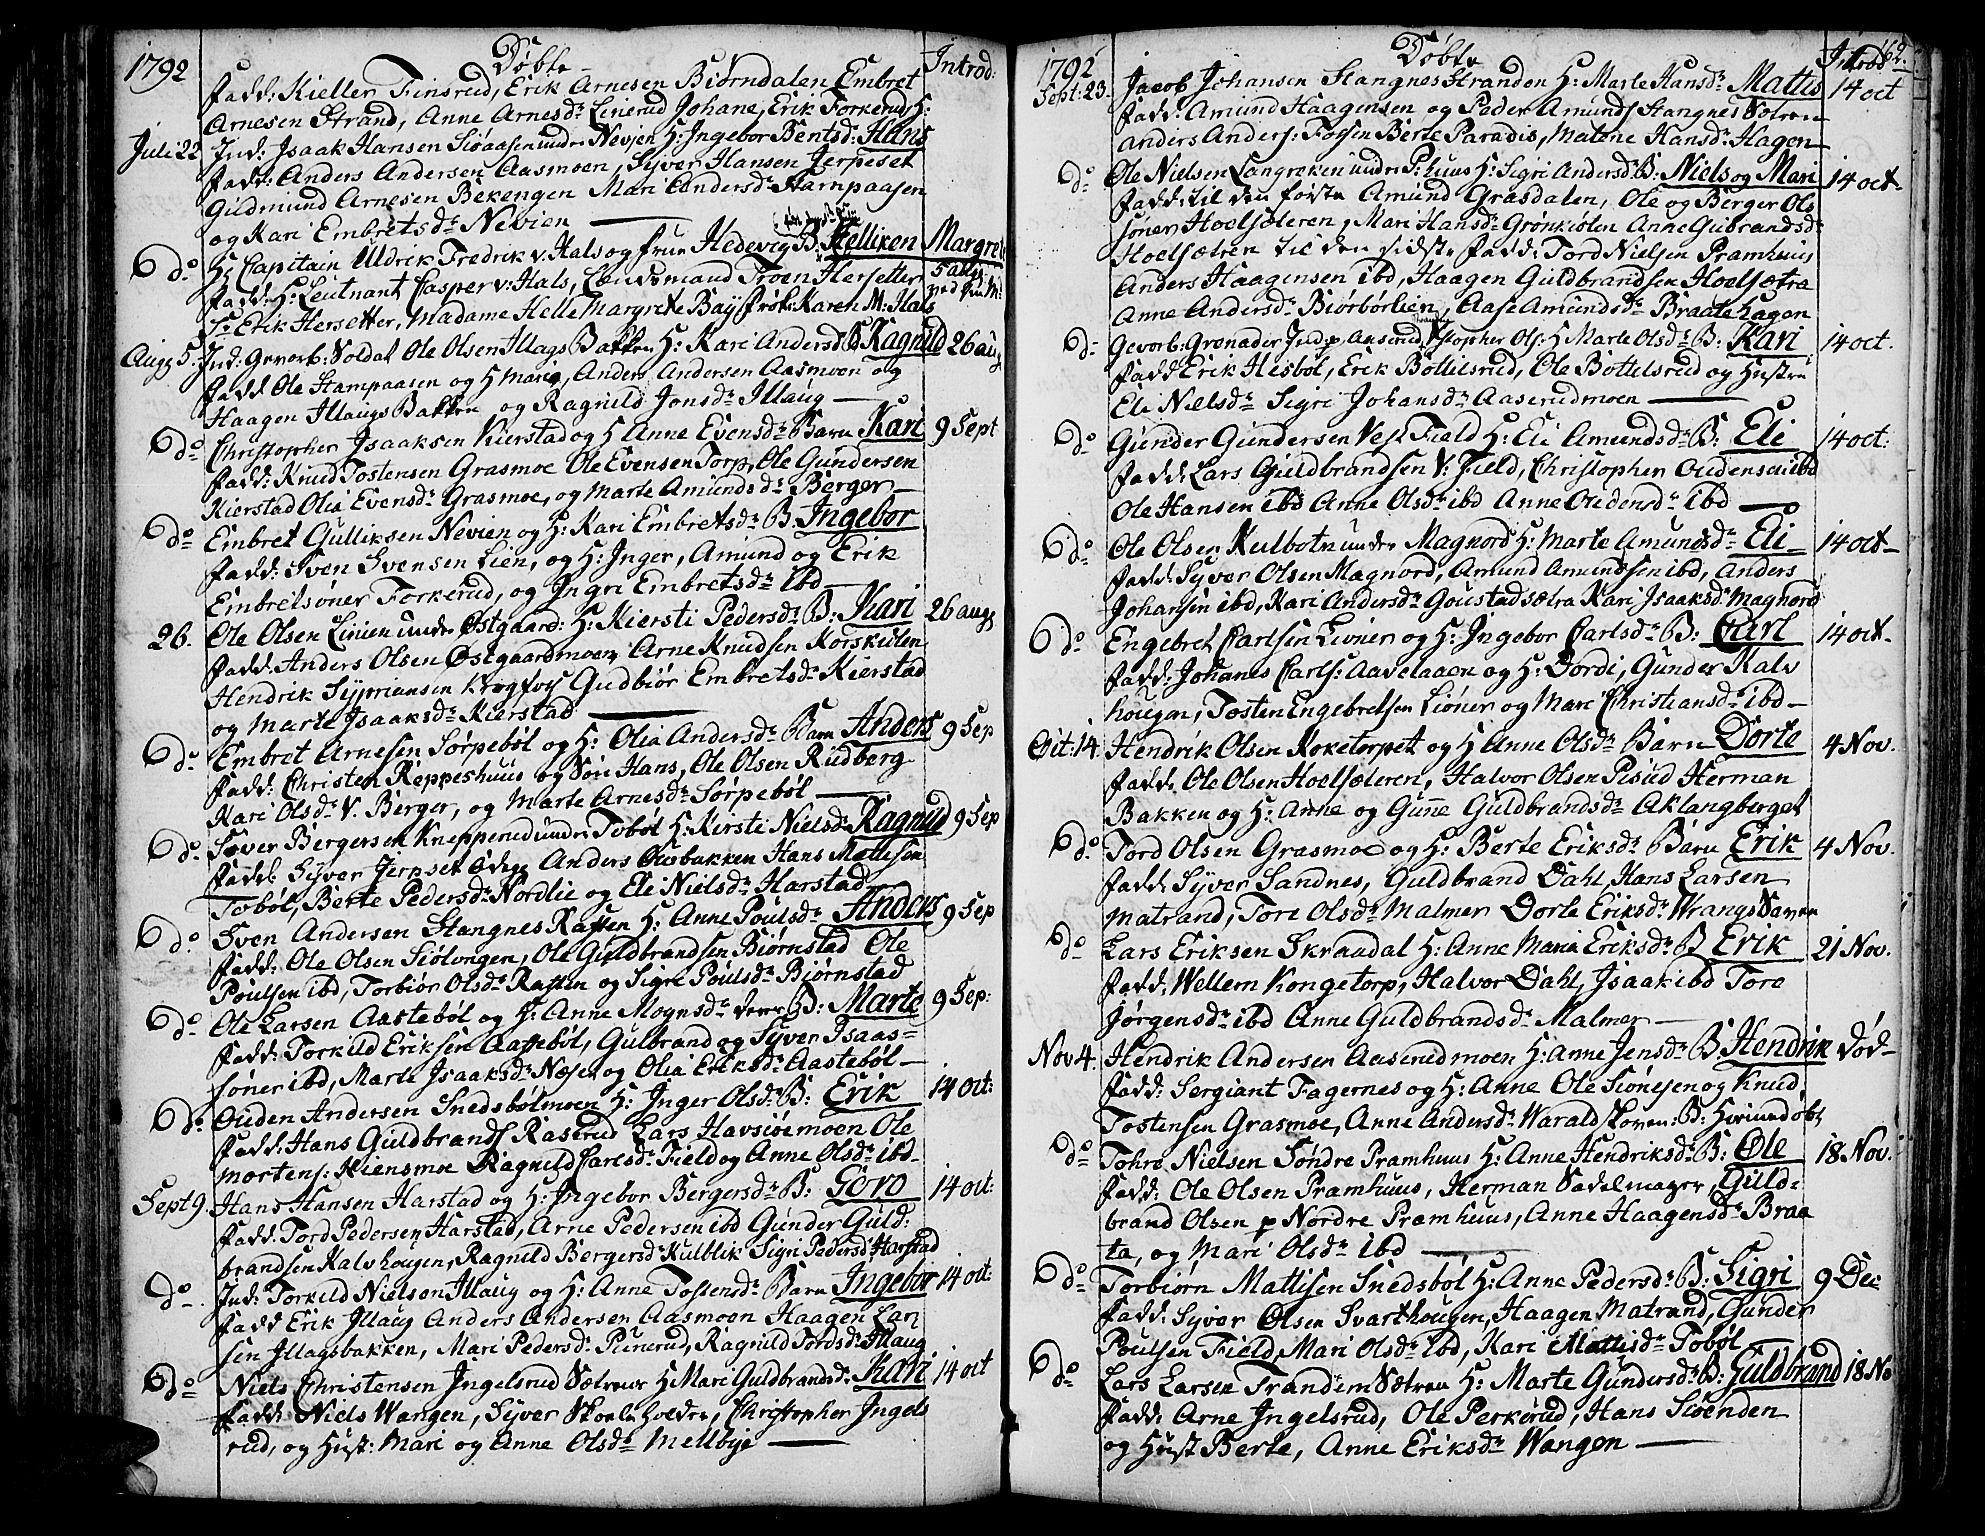 1792 Døbte Introd:
Fadd: Kieller Finsrud, Erik Arnesen Biørndalen Embret
Arnesen Strand, Anne Arnesd: Linerud Johane, Erik Forkerud H:
Juli 22 Ind: Isaak Hansen Siøaasen under Nevien H: Ingebor Bentsd: Hans
Fadd: Anders Andersen Aasmoen, Syver Hansen Jerpeset
Gudmund Arnesen Bekengen Mari Andersd: Stampaasen
og Kari Embretsd: Nevien
do H: Capitain Uldrik Fredrik v. Hals og frue Hedevig B. Helliken Margrete
Fadd: H: Leutnant Casper v: Hals, Lendsmand Troen Hersetter
Erik Hersetter, Madame Helle Margrete Bay Frøk: Karen M: Hals
Aug 5. Ind: Gevorb: Soldat Ole Olsen Illags Bakken H: Kari Andersd B Ragnild 26 aug
Fadd Ole Stampaasen og H Mari, Anders Andersen Aasmoen og
Haagen Illaugs Bakken og Ragnild Jonsd: Illaug
do Christopher Isaaksen Kierstad og H Anne Evensd: Barn Kari 9 Sept
Fadd: Knud Tostensen Grasmoe Ole Evensen Torp, Ole Gundersen
Kierstad Olia Evensd: Grasmoe, og Marte Amundsd: Berger
do Embret Gulliksen Nevien og H: Kari Embretsd: B. Ingebor
Fadd: Sven Svensen Lien, og H: Inger, Amund og Erik
Embretsøner Forkerud, og Ingri Embretsd: ibd
26. Ole Olsen Linien under Østgaard: H: Kiersti Pedersd: B: Kari 26 aug
Fadd: Anders Olsen Østgaardmoen Arne Knudsen Korskilen
Hendrik Sypriansen Krogfos Gudbiør Embretsd: Kierstad
og Marte Isaaksd: Kierstad
do Embret Arnesen Sørpebøl og H: Olia Andersd: Barn Anders 9 Sep
Fadd: Christen Reppeshuus og Siri Hans, Ole Olsen Rudberg
Kari Olsd: V. Berger, og Marte Arnesd: Sørpebøl
do Sæver Bergersen Knepperud under Tobøl H: Kirsti Nielsd: Ragnild 9 Sep
Fadd: Syver Jerpset Anders Ousbakken Hans Mattisen
Tobøl, Berte Pedersd: Nordlie og Eli Nielsd: Harstad
do Sven Andersen Stangnes Rasten H: Anne Poulsd: Anders 9 Sep
Fadd: Ole Olsen Siølvngen, Ole Guldbrandsen Biørnstad Ole
Poulsen ibd, Torbiør Olsd: Rasten og Sigri Poulsd: Biørnstad
do Ole Larsen Aastebøl og H: Anne Mognsd: B: Marte 9 Sep:
Fadd: Torkild Eriksen Aastebøl, Gulbrand og Syver Isaas=
søner ibd, Marte Isaaksd: Næsen og Olia Eriksd: Aastebøl
do Ouden Andersen Snedsbølmoen H: Inger Olsd: B: Erik 14 Oct:
Fadd: Hans Guldbrands Rasrud Lars Havsiøemoen Ole
Mortens: Kiensmoe Ragnild Carlsd: Field og Anne Olsd: ibd
Sept 9. Hans Hansen Harstad og H: Ingebor Bergersd: B: Goro 14 oct:
Fadd: Tord Pedersen Harstad, Arne Pedersen ibd Gunder Guld:
brandsen Kalvhougen, Ragnild Bergersd: Kulblik Sigri Pedersd: Harstad
do Ind: Torkild Nielsen Illaug og H: Anne Tostensd: Barn Ingebor 14 oct:
Fadd Erik Illaug Anders Andersen Aasmoen Haagen Lar
sen Illagsbakken, Mari Pedersd: Purerud, Ragnild Tordsd: Illaug
do Niels Christensen Ingelsrud Sætren H: Mari Guldbrandsd: Kari 14 oct
Fadd: Niels Wangen, Syver Skoeleholder, Christopher Ingels
rud, og Hust: Mari og Anne Olsd: Mellbye

1792 Døbte Introd 162.
Sept: 23. Jacob Johansen Stangnes Stranden H: Marte Hansd: Mattis 14 oct
Fadd: Amund Haagensen og Peder Amunds Stangnes Sætren
Anders Anders: Fosen Berte Paradis, Malene Hansd: Hagen
do Ole Nielsen Langreken under Pr: huus H: Sigri Andersd: B: Niels og Mari 14 oct
Fadd: til den første Amund Grasdalen, Ole og Berger Ole
sønner Hoelsæteren, Mari Hansd: Grønkiøten Anne Gubrandsd:
Hoelsætren til den sidste Fadd: Tord Nielsen Pramhuus
Anders Haagensen ibd, Haagen Guldbrandsen Hoelsætra
Anne Andersd: Biørbørlien, Aase Amundsd: Braate hagen
do Gevorb: Gronader Ind: p Aaserud Kstopher Ols: H Marte Olsd: B: Kari 14 oct.
Fadd Erik Hesbøl, Erik Bottelsrud, Ole Bottelsrud og Hustru
Eli Nielsd: Sigri Johansd: Aaserudmoen
do Gunder Gundersen Vest Field H: Eli Amundsd: B: Eli 14 oct:
Fadd: Lars Guldbrandsen V: Field, Christopher Oudensen ibd
Ole Hansen ibd Anne Olsd: ibd Anne Oudensd: ibd
do Ole Olsen Kulboten under Magnord H: Marte Amundsd: Eli 14 oct
Fadd: Syver Olsen Magnord, Amund Amundsen ibd, Anders
Johansen ibd, Kari Andersd: Goustadsætra Kari Isaaksd: Magnord
do Engebret Carlsen Liøner og H: Ingebor Carlsd: B: Carl 14 oct
Fadd: Johanes Carls: Aavelaaen og H: Dordi, Gunder Kalv
hougen, Tosten Engebretsen Liøner og Mari Christiansd: ibd
Oct: 14. Hendrik Olsen Koketorpet og H Anne Olsd: Barn Dorte 4 Nov.
Fadd: Ole Olsen Hoelsæteren, Halvor Olsen Pisud Herman
Bakken og H: Anne og Gunne Guldbrandsd: Aklangberget
do Tord Olsen Grasmoe og H: Berte Eriksd: Barn Erik 4 Nov.
Fadd: Syver Sandnes, Guldbrand Dahl, Hans Larsen
Matrand, Tore Olsd: Malmer Dorte Eriksd: Wrangs Sæven
do Lars Eriksen Skraadal H: Anne Maria Eriksd: B Erik 21 Nov.
Fadd: Wellem Kongetorp, Halvor Dahl, Isaak ibd Tore
Jørgensd: ibd Anne Guldbrandsd: Malmer
Nov 4. Hendrik Andersen Aaserudmoen H: Anne Jensd: B Hendrik Død
Fadd: Sergiant Fagernes og H: Anne Ole Siønesen og Knud
Tostensen Grasmoe, Anne Andersd: Warald Skoven: B: Hiemmdøbt
do Tohre Nielsen Søndre Pramhuus H: Anne Hendriksd: B: Ole 18 Nov.
Fadd: Ole Olsen Pramhuus, Herman Sadelmager, Guld=
brand Olsen p Nordre Pramhuus, Anne Haagensd: Braa
ta, og Mari Olsd: ibd
do Torbiørn Mattisen Snedsbøl H: Anne Pedersd: B: Sigri 9 Dec
Fadd: Syver Olsen Svarthougen, Haagen Matrand, Gunder
Poulsen Field, Mari Olsd: ibd, Kari Mattisd: Tobøl
do Lars Larsen Trandem Sætren H: Marte Gundersd: B: Guldbrand 18 No
Fadd: Arne Ingelsrud, Ole Perkørud, Hans Siøenden
og Hust Berte, Anne Eriksd: Wangen